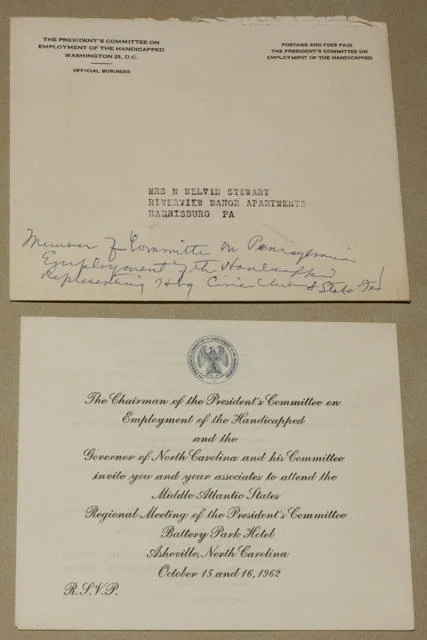 THE PRESIDENT'S COMMITTEE ON
EMPLOYMENT OF THE HANDICAPPED
WASHINGTON 25, D.C.
OFFICIAL BUSINESS
POSTAGE AND FEES PAID
THE PRESIDENT'S COMMITTEE ON
EMPLOYMENT OF THE HANDICAPPED
MRS N MELVIN STEWART
RIVERVIEW MANOR APARTMENTS
HARRISBURG PA
Member of Committee on Pennsylvania
Employment of the Handicapped
Representing Hbg Civic Club & State Fed
The Chairman of the President's Committee on
Employment of the Handicapped
and the
Governor of North Carolina and his Committee
invite you and your associates to attend the
Middle Atlantic States
Regional Meeting of the President's Committee
Battery Park Hotel
Asheville, North Carolina
October 15 and 16, 1962
R.S.V.P.